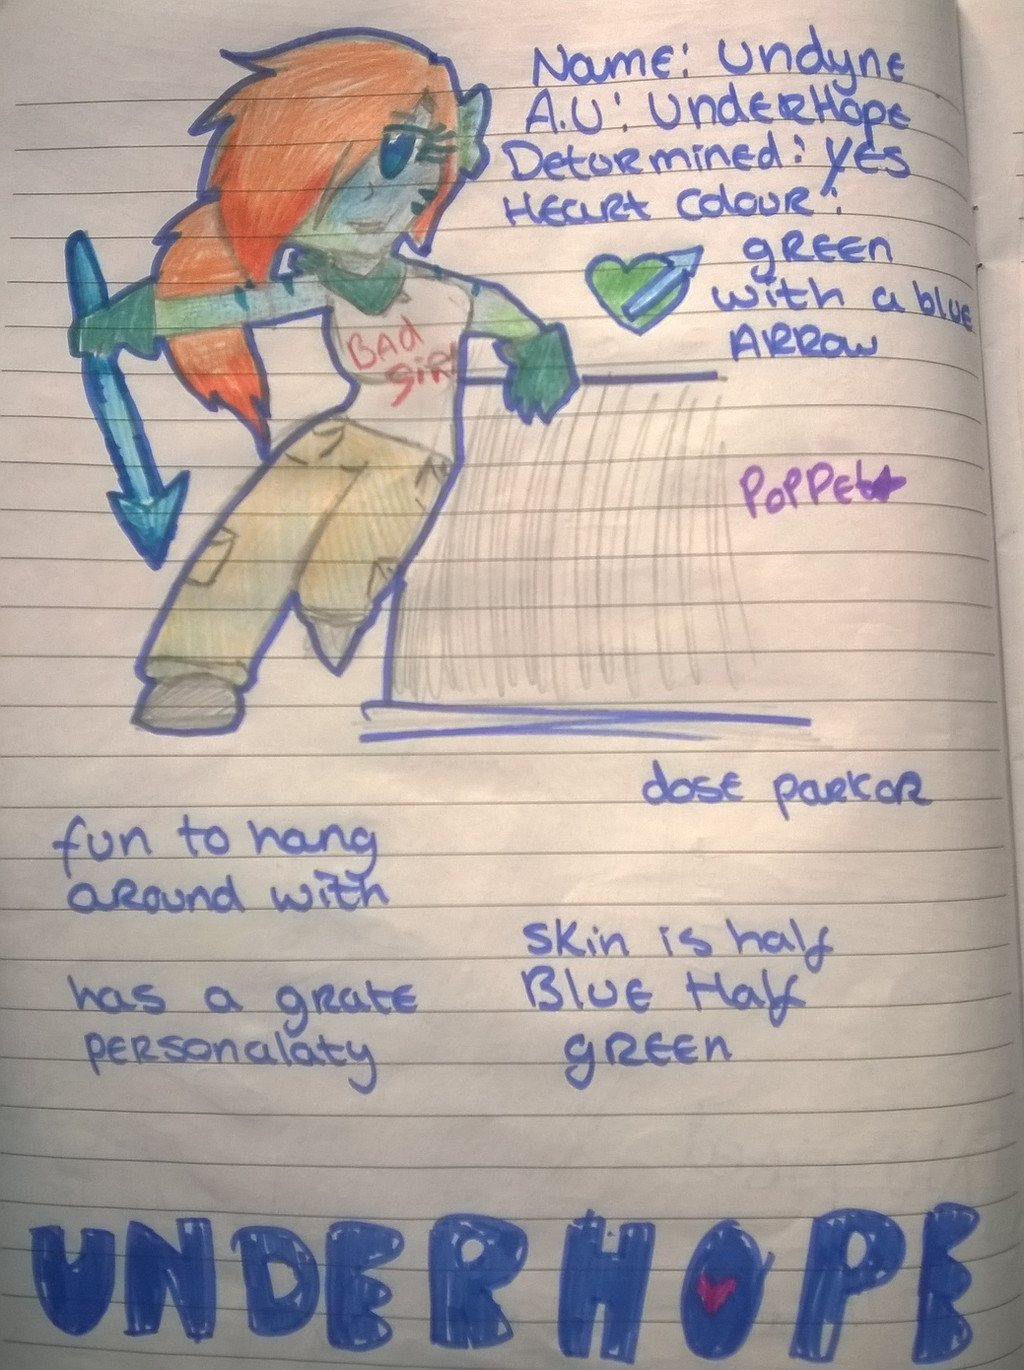 Name: Undyne
A.U: UnderHope
Determined: Yes
Heart Colour:
green
with a blue
Arrow
BAd
girl
Poppet
dose parkor
fun to hang
around with
skin is half
Blue Half
green
has a grate
personalaty
UNDERHOPE